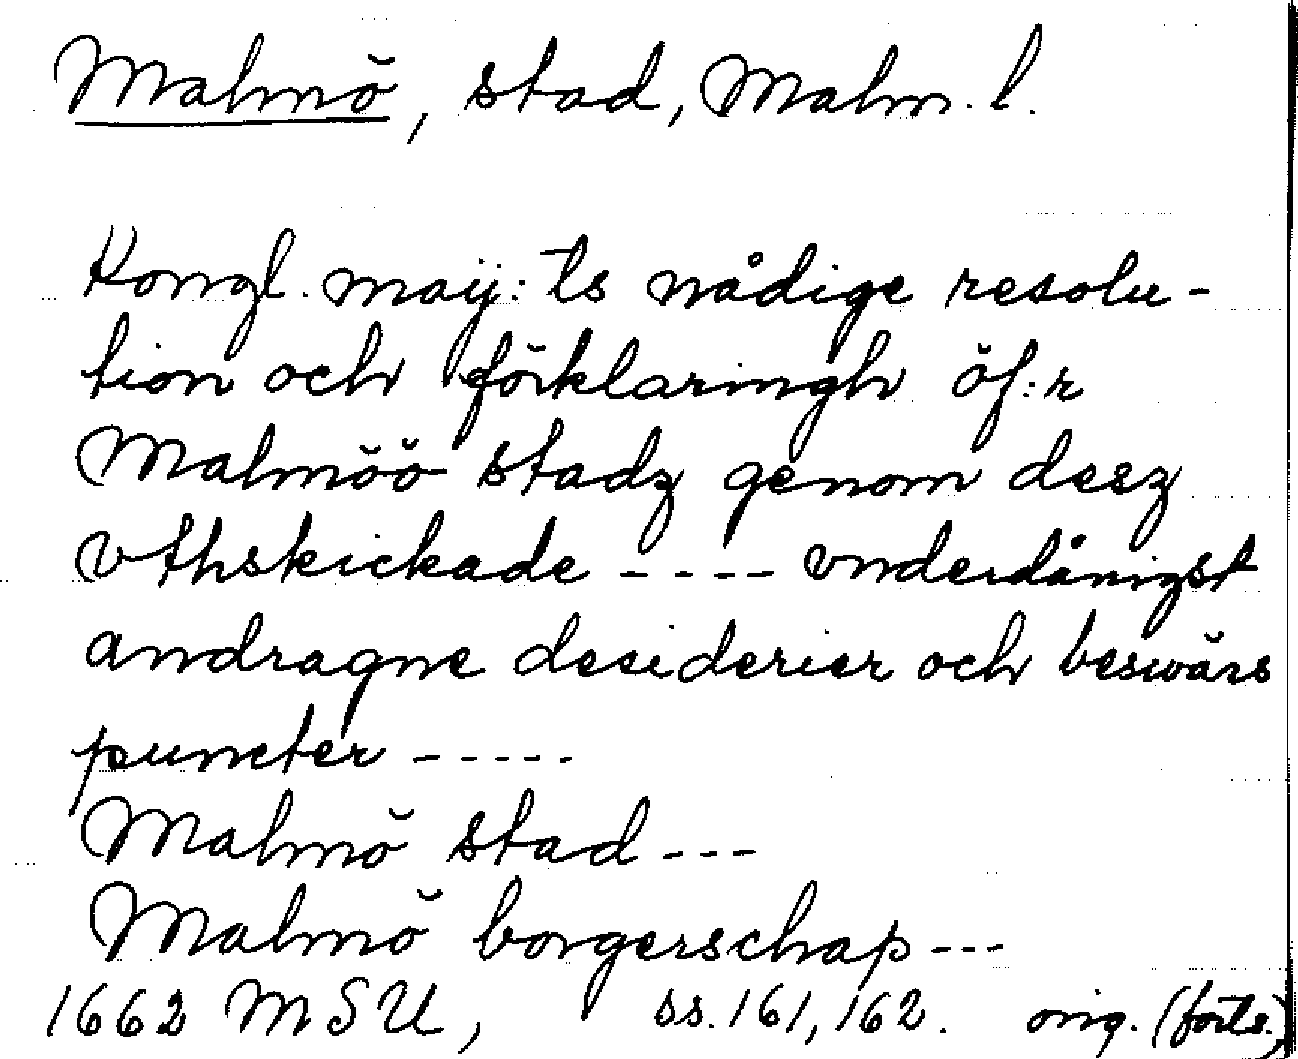 Malmö, stad, Malm. l.
Kongl. maij:ts nådige resolu-
tion och förklaringh öf:r
Malmöö stadz genom desz
vthskickade ---- vnderdånigst
andragne desiderier och beswärs
puncter -----
Malmö stad ---
Malmö borgerschap ---
1662 MSU, ss. 161, 162. orig. (forts.)